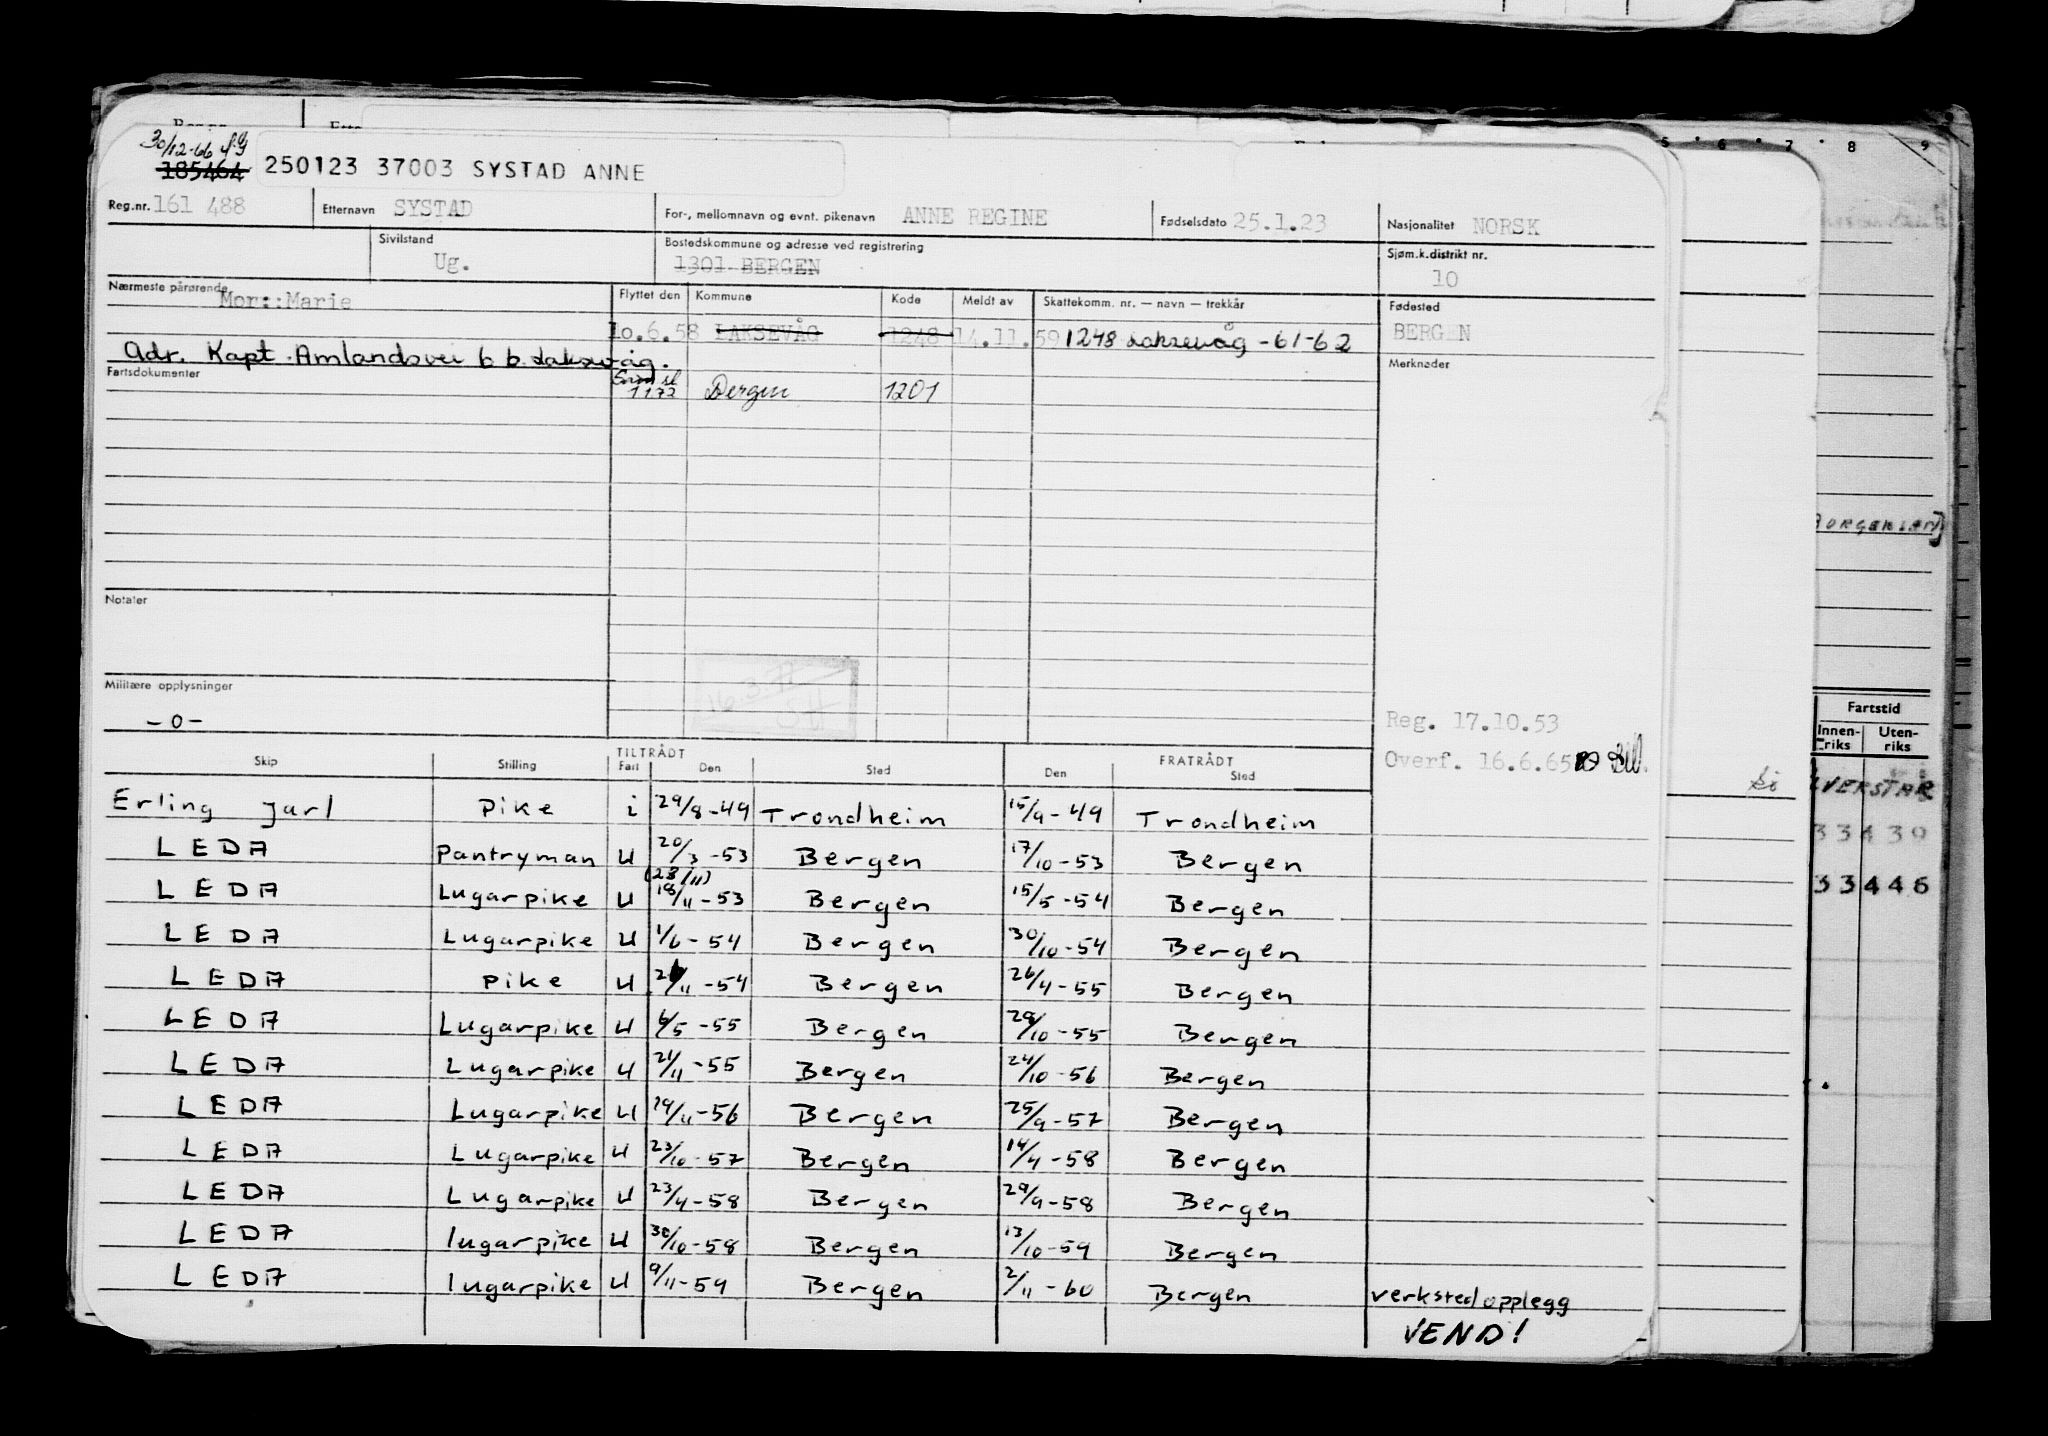 30/12-66
185464 250123 37003 SYSTAD ANNE
Reg.nr. 161 488 Etternavn SYSTAD For-, mellomnavn og evnt. pikenavn ANNE REGINE Fødselsdato 25.1.23 Nasjonalitet NORSK
Sivilstand Ug. Bostedskommune og adresse ved registrering 1301 BERGEN Sjøm.k.distrikt nr. 10
Nærmeste pårørende Mor: Marie Flyttet den Kommune Kode Meldt av Skattekomm. nr. — navn — trekkår Fødested BERGEN
10.6.58 LAKSEVÅG 1248 14.11.59 1248 Laksevåg -61-62
Adr. Kapt. Amlandsvei 6 b. Laksevåg.
Fartsdokumenter 1172 Bergen 1201 Merknader
Notater
Militære opplysninger
-0-
16.3.77
Reg. 17.10.53
Overf. 16.6.65
Skip Stilling TILTRÅDT Fart Den Sted FRATRÅDT Den Sted
Erling Jarl pike i 29/8-49 Trondheim 15/9-49 Trondheim
LEDA pantryman U 20/3-53 Bergen 17/10-53 Bergen
(23/11)
LEDA Lugarpike U 18/11-53 Bergen 15/5-54 Bergen
LEDA Lugarpike U 1/6-54 Bergen 30/10-54 Bergen
LEDA pike U /11-54 Bergen 26/4-55 Bergen
LEDA Lugarpike U 6/5-55 Bergen /10-55 Bergen
LEDA Lugarpike U 21/11-55 Bergen 24/10-56 Bergen
LEDA Lugarpike U 29/11-56 Bergen 25/9-57 Bergen
LEDA Lugarpike U 23/10-57 Bergen 14/4-58 Bergen
LEDA Lugarpike U 23/4-58 Bergen 29/9-58 Bergen
LEDA lugarpike U 30/10-58 Bergen 13/10-59 Bergen
LEDA lugarpike U 9/11-59 Bergen 2/11-60 Bergen verkstedopplegg
VEND!
5 6 7 8 9
Fartstid
Innenriks Utenriks
33439
33446